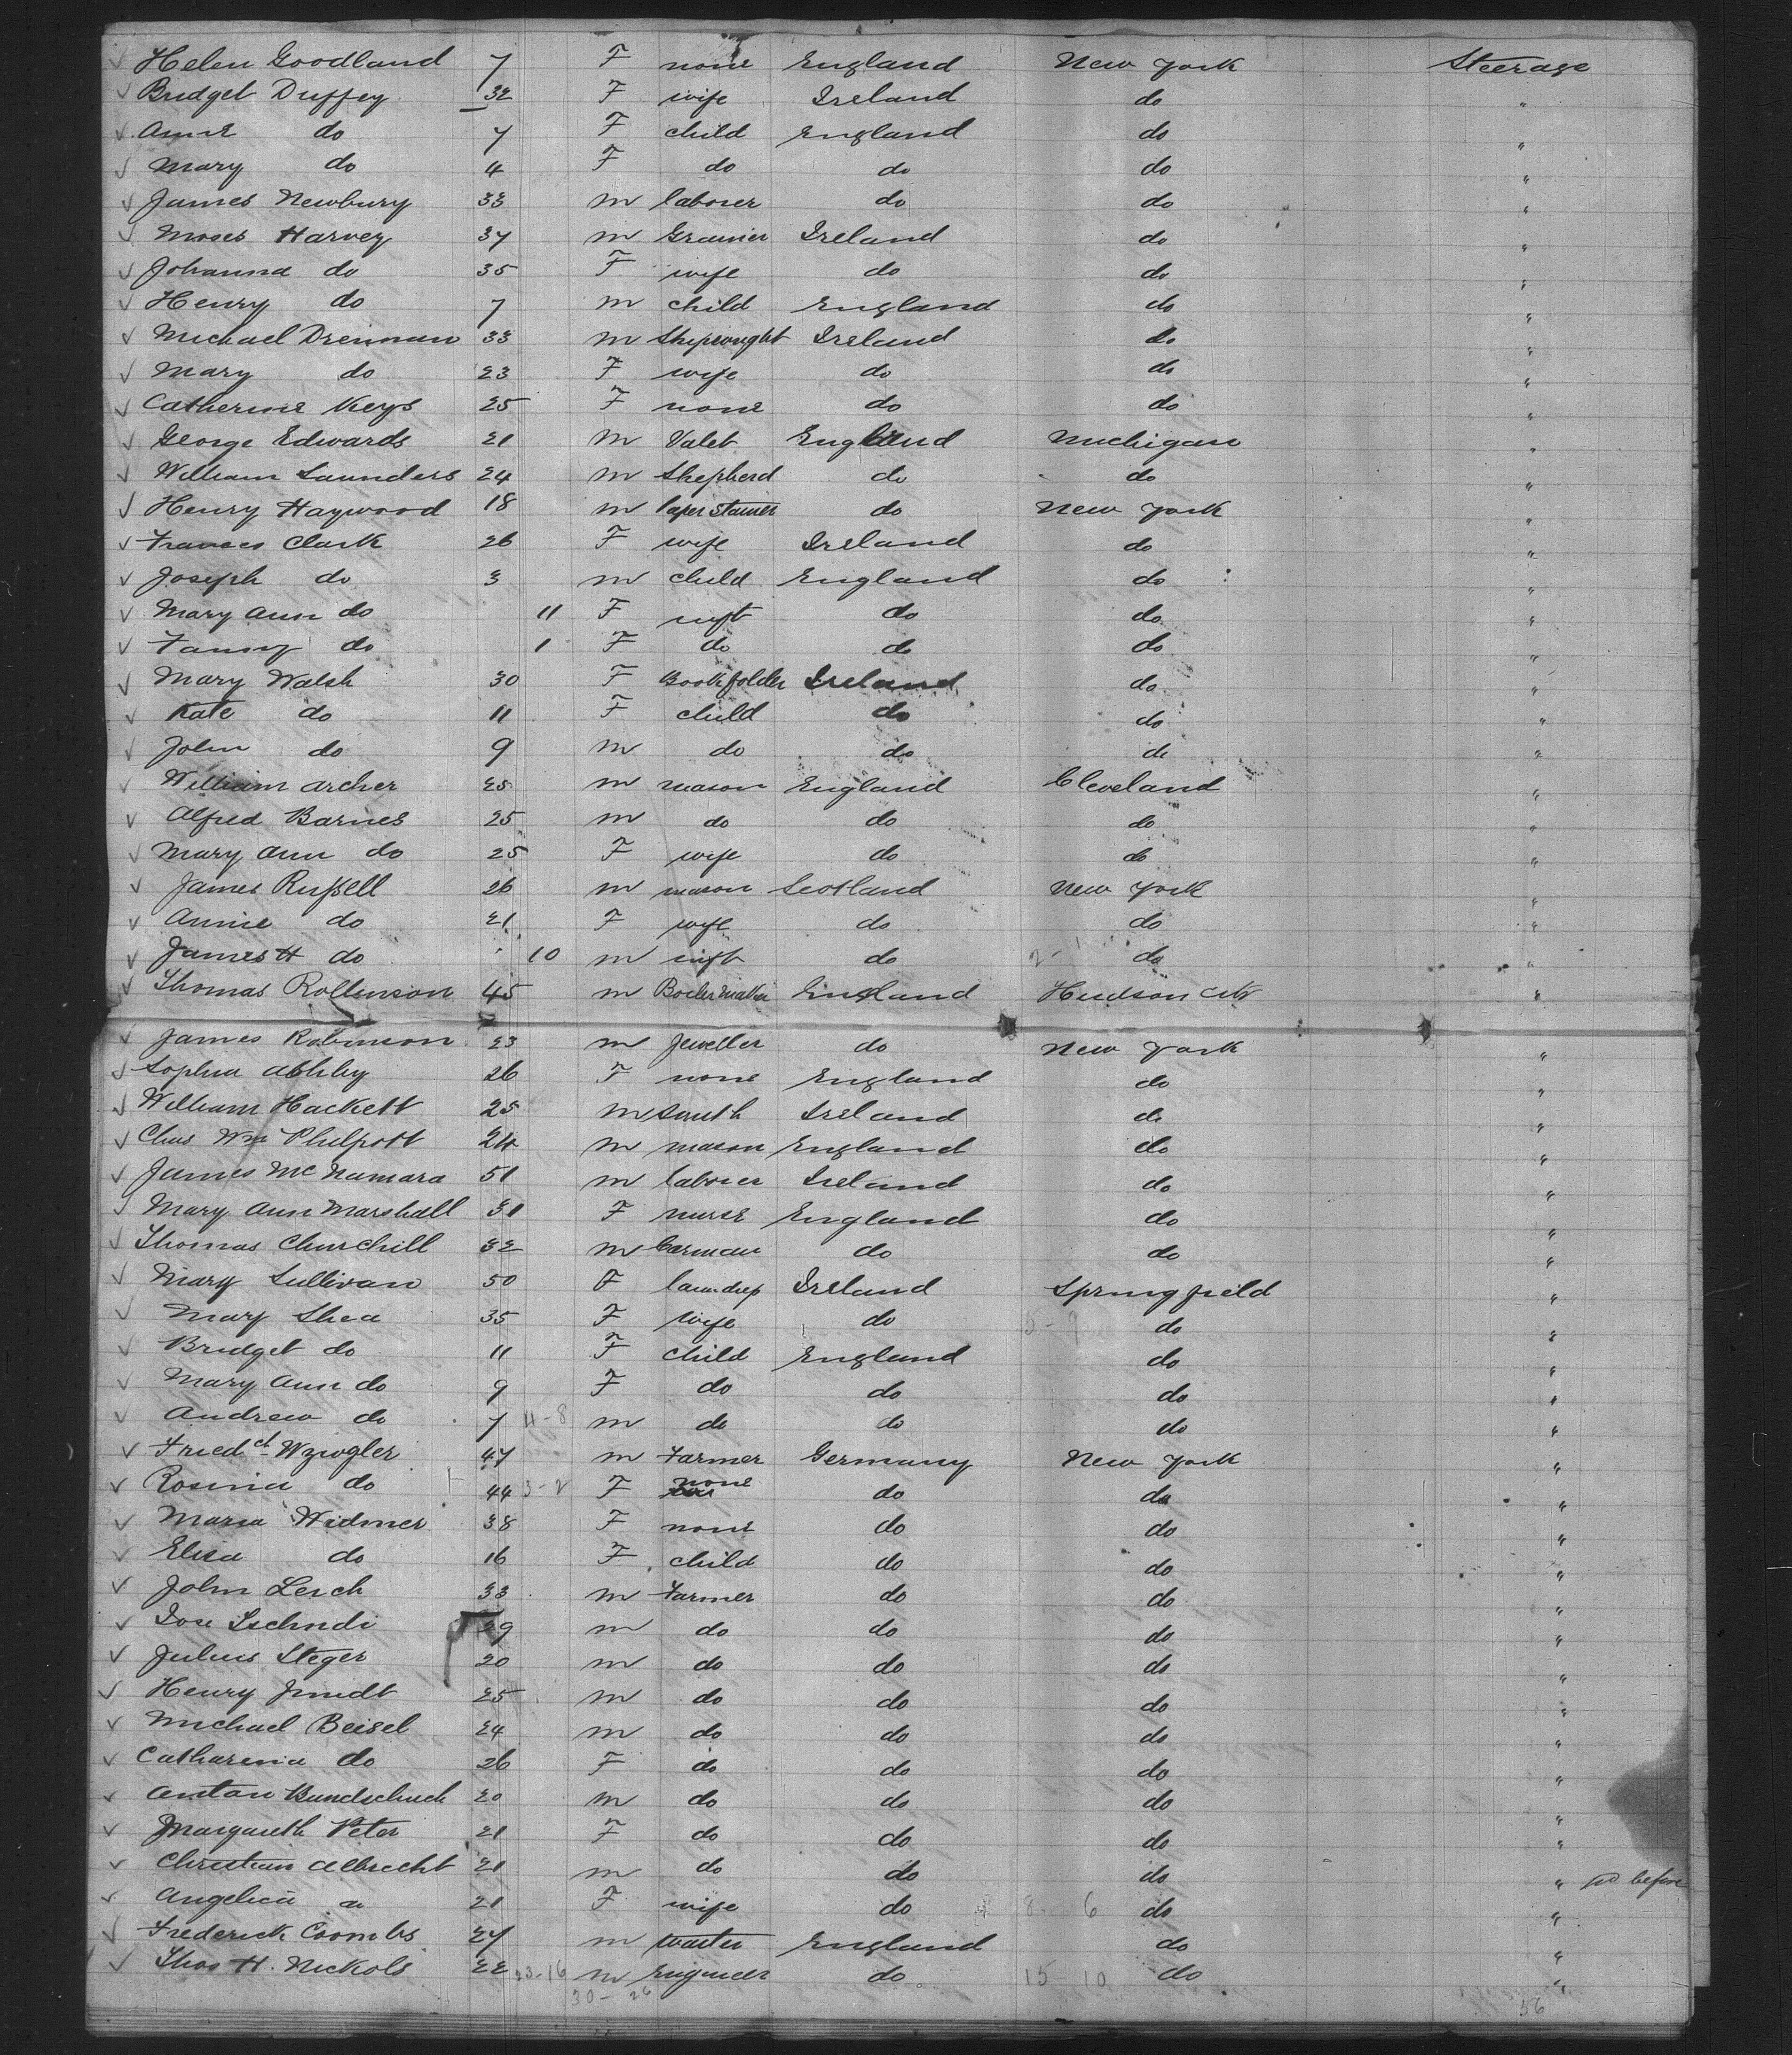 Helen Goodland 7 F none England New York Steerage
Bridget Duffey 32 F wife Ireland do "
Anne do 7 F child England do "
Mary do 4 F do do do "
James Newbury 33 m laborer do do "
Moses Harvey 37 m Ireland do "
Johanna do 35 F wife do do "
Henry do 7 m child England do "
Michael Drennan 33 m Shipwright Ireland do "
Mary do 23 F wife do do "
Catherine Keys 25 F none do do "
George Edwards 21 m Valet England Michigan "
William Saunders 24 m Shepherd do do "
Henry Haywood 18 m Paper stainer do New York "
Frances Clark 26 F wife Ireland do "
Joseph do 3 m child England do "
Mary Ann do 11 F inft do do "
Fanny do 1 F do do do "
Mary Walsh 30 F Bookfolder Ireland do "
Kate do 11 F child do do "
John do 9 m do do do "
William Archer 25 m mason England Cleveland "
Alfred Barnes 25 m do do do "
Mary Ann do 25 F wife do do "
James Russell 26 m mason Scotland New York "
Annie do 21 F wife do do "
James H do 10 m inft do do "
Thomas Rollinson 45 m Boilermaker England Hudson City "
James Robinson 23 m Jeweller do New York "
Sophia Ashley 26 F none England do "
William Hackett 25 m Smith Ireland do "
Chas Wm Philpott 24 m mason England do "
James McNamara 51 m laborer Ireland do "
Mary Ann Marshall 31 F nurse England do "
Thomas Churchill 32 m Carman do do "
Mary Sullivan 50 F laundrss Ireland Springfield "
Mary Shea 35 F wife do do "
Bridget do 11 F child England do "
Mary Ann do 9 F do do do "
Andrew do 7 11-8 m do do do "
Friedch 47 m Farmer Germany New York "
Rosina do 44 3-2 F none do do "
Maria Widmer 38 F none do do "
Elisa do 16 F child do do "
John Lerch 33 m Farmer do do "
29 m do do do "
Julius Steger 20 m do do do "
Henry 25 m do do do "
Michael Beisel 24 m do do do "
Catharena do 26 F do do do "
Anton Bundschuch 20 m do do do "
Margareth Peter 21 F do do do "
Christian Albrecht 21 m do do do " before
Angelica 21 F wife do 8 6 do "
Frederick Coombs 27 m waiter England do "
Thos H. Nickols 22 m Engineer do 15 - 10 do "
30 - 26 56